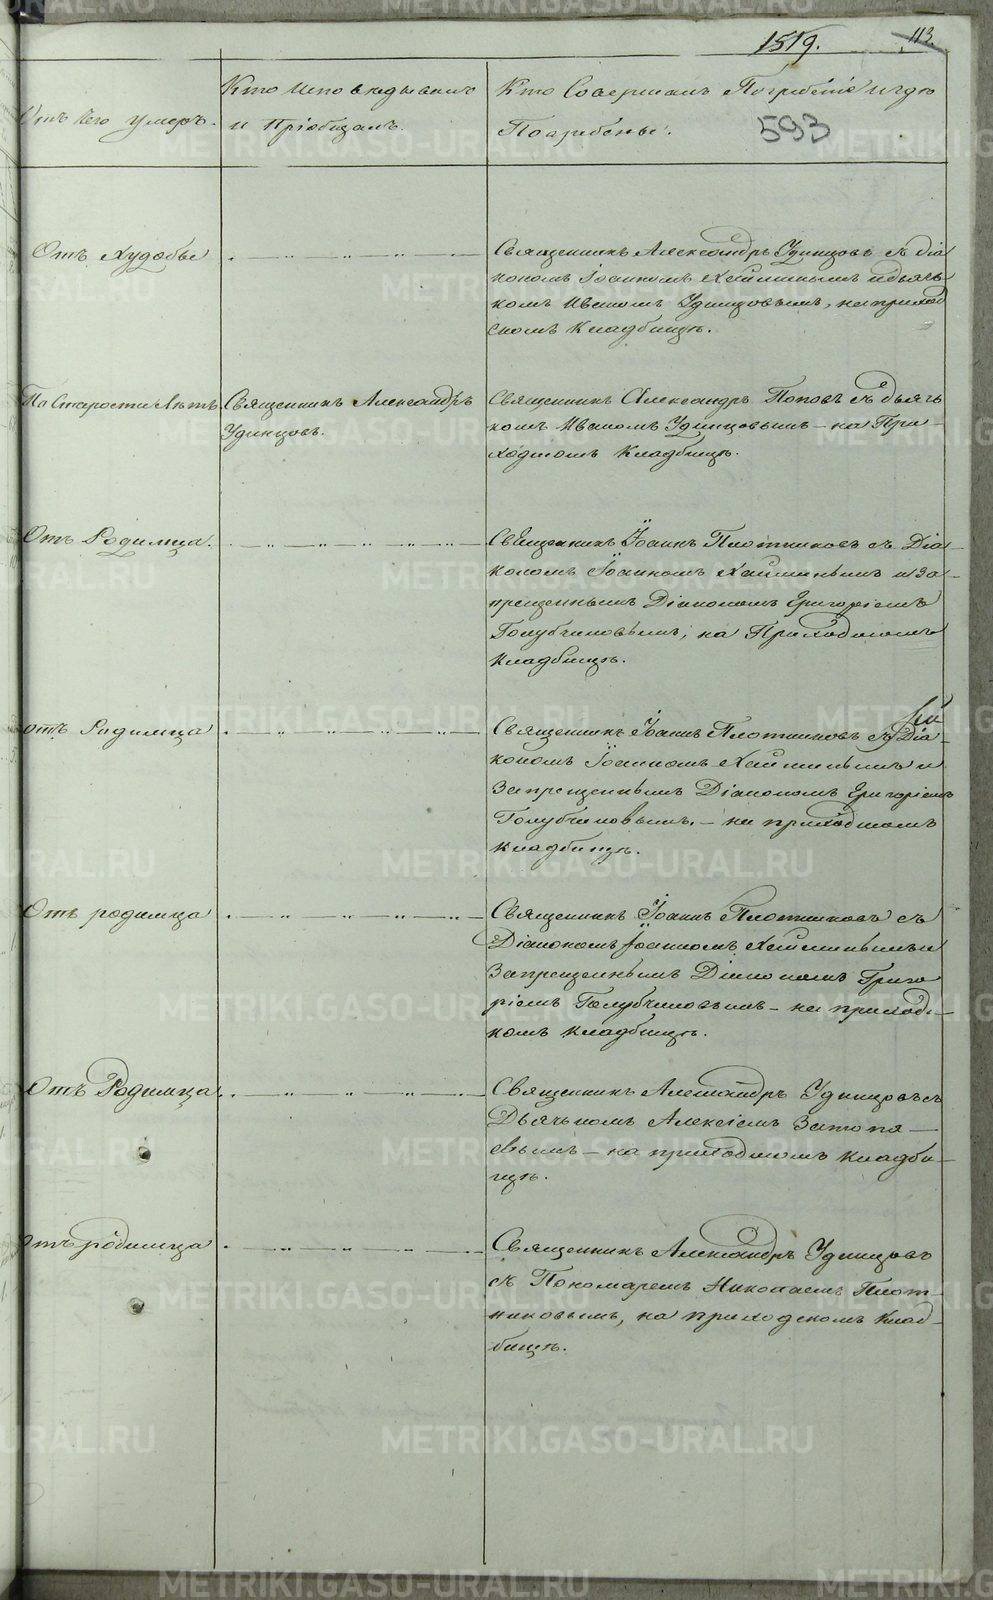 1519. 113.
Отъ чего умеръ.
Кто исповедывалъ
и пріобщалъ.
Кто Совершалъ Погребеніе и гдѣ
Погребены.
593
Отъ худобы
Священникъ Александръ Удинцовъ съ діа
кономъ Іоанномъ Хаймиными и дьячь
комъ Иваномъ Удинцовымъ, на приход
скомъ кладбищѣ.
По Старости лѣтъ
Священникъ Александръ
Удинцовъ.
Священникъ Александръ Поповъ съ дьячь
комъ Иваномъ Удинцовымъ – на При-
ходскомъ Кладбищѣ.
Отъ Родимца.
Священникъ Іоаннъ Плотниковъ съ Діа-
кономъ Іоанномъ Хайминымъ и За-
прещеннымъ Діакономъ Григоріемъ
Голубчиковымъ, на Приходскомъ
кладбищѣ.
отъ Родимца
Священникъ Іоаннъ Плотниковъ съ Діа-
кономъ Іоанномъ Хайминымъ и
Запрещеннымъ Діакономъ Григоріемъ
Голубчиковымъ. – на приходскомъ
кладбищѣ.
Отъ родимца
Священникъ Іоаннъ Плотниковъ съ
Діакономъ Іоанномъ Хайминымъ и
Запрещеннымъ Діакономъ Григо
ріемъ Голубчиковымъ – на приходс-
комъ кладбищѣ.
Отъ Родимца
Священникъ Александръ Удинцовъ съ
Дьячькомъ Алексіемъ Затопля-
евымъ – на приходскомъ кладби-
щѣ.
Отъ родимца
Священникъ Александръ Удинцовъ
съ Пономаремъ Николаемъ Плот-
никовымъ, на приходскомъ клад-
бищѣ.
METRIKI.GASO-URAL.RU